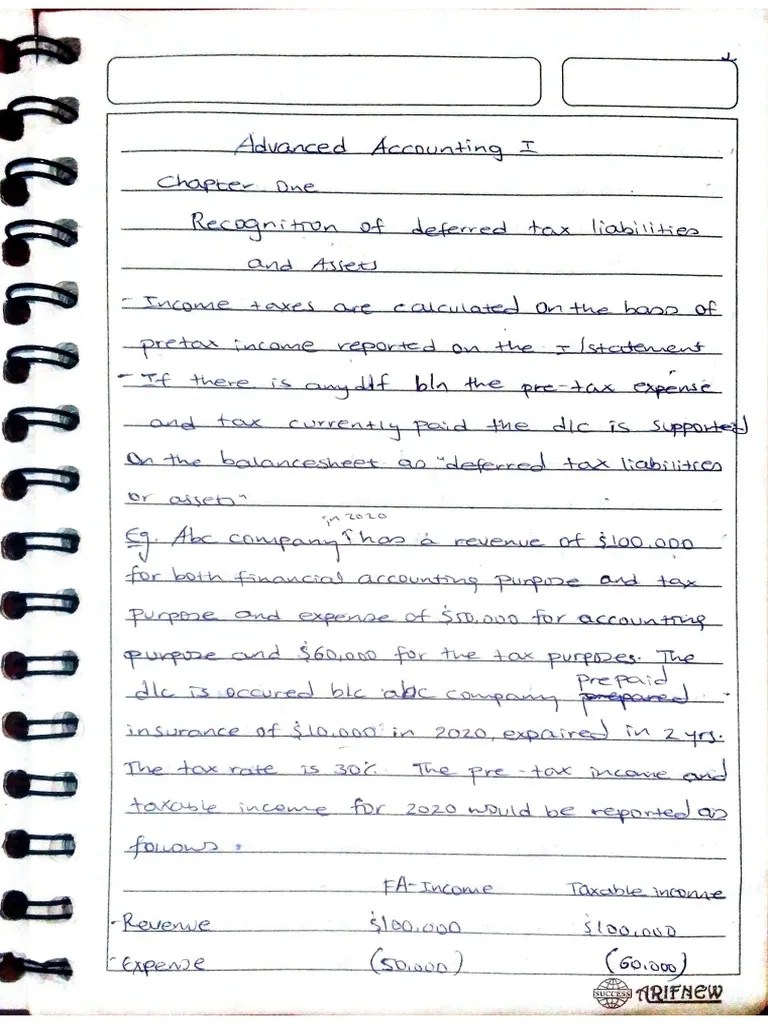 Advanced Accounting I
Chapter One
Recognition of deferred tax liabilities
and Assets
- Income taxes are calculated on the bases of
pretax income reported on the I/statement
- If there is any dif b/n the pre-tax expense
and tax currently paid the d/c is supported
on the balancesheet as "deferred tax liabilities
or assets"
in 2020
Eg. Abc company has a revenue of $100,000
for both financial accounting purpose and tax
purpose and expense of $50,000 for accounting
purpose and $60,000 for the tax purposes. The
prepaid
d/c is occured b/c abc company prepared
insurance of $10,000 in 2020, expaired in 2 yrs.
The tax rate is 30%. The pre-tax income and
taxable income for 2020 would be reported as
follows:
FA-Income Taxable income
- Revenue $100,000 $100,000
- Expense (50,000) (60,000)
SUCCESS ARIFNEW